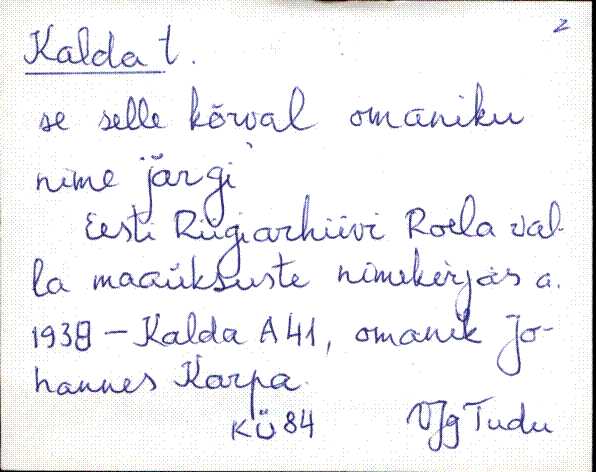 2
Kalda t.
se selle kõrval omaniku
nime järgi
Eesti Riigiarhiivi Roela val-
la maaüksuste nimekirjas a.
1939 – Kalda A 41, omanik Jo-
hannes Karpa.
KÜ 84 VJg Tudu